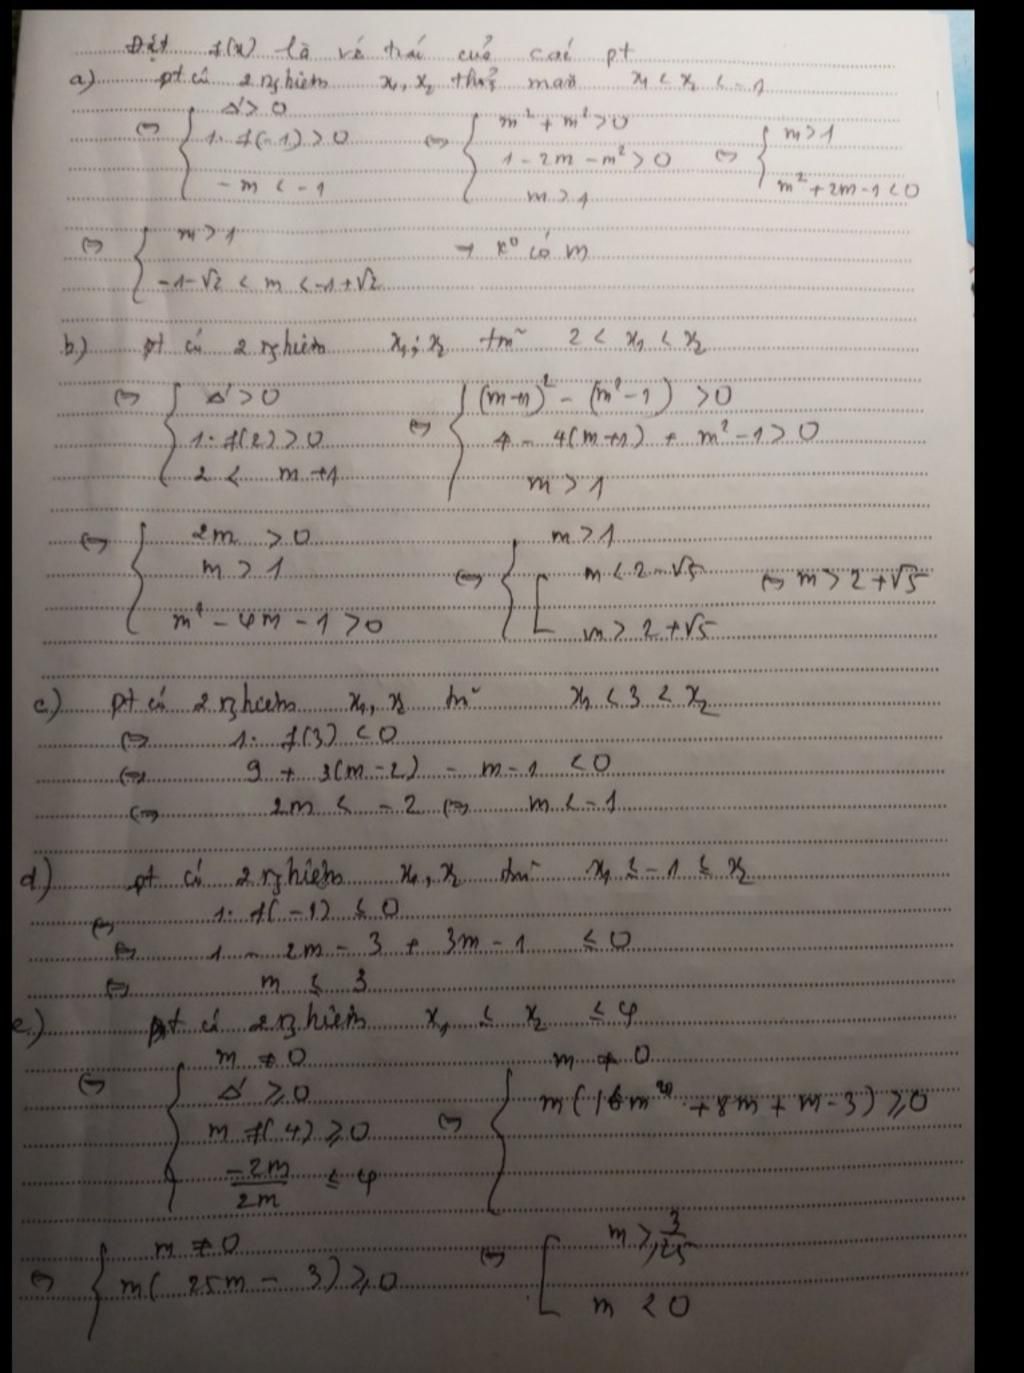 Đặt f(x) là vế trái của các pt
a) pt có 2 nghiệm x₁, x₂ thỏa mãn x₁ < x₂ < -1
⇔ { Δ' > 0 ; 1. f(-1) > 0 ; -m < -1 ⇔ { m² + m² > 0 ; 1 - 2m - m² > 0 ; m > 1 ⇔ { m > 1 ; m² + 2m - 1 < 0
⇔ { m > 1 ; -1-√2 < m < -1+√2 → k⁰ có m
b) pt có 2 nghiệm x₁; x₂ tm~ 2 < x₁ < x₂
⇔ { Δ' > 0 ; 1. f(2) > 0 ; 2 < m+1 ⇔ { (m+1)² - (m²-1) > 0 ; 4 - 4(m+1) + m² - 1 > 0 ; m > 1
⇔ { 2m > 0 ; m > 1 ; m² - 4m - 1 > 0 ⇔ { m > 1 ; [ m < 2 - √5 ; m > 2 + √5 ⇔ m > 2 + √5
c) pt có 2 nghiệm x₁, x₂ tm~ x₁ < 3 < x₂
⇔ 1. f(3) < 0
⇔ 9 + 3(m-2) - m - 1 < 0
⇔ 2m < -2 ⇔ m < -1
d) pt có 2 nghiệm x₁, x₂ tm~ x₁ ≤ -1 ≤ x₂
⇔ 1. f(-1) ≤ 0
⇔ 1 - 2m - 3 + 3m - 1 ≤ 0
⇔ m ≤ 3
e) pt có 2 nghiệm x₁ ≤ x₂ ≤ 4
⇔ { m ≠ 0 ; Δ' ≥ 0 ; m f(4) ≥ 0 ; -2m/2m ≤ 4 ⇔ { m ≠ 0 ; m(16m + 8m + m - 3) ≥ 0
⇔ { m ≠ 0 ; m(25m - 3) ≥ 0 ⇔ [ m ≥ 3/25 ; m < 0